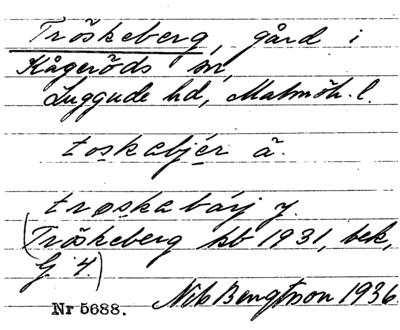 Tröskeberg, gård i
Kågeröds sn,
Luggude hd, Malmöh. l.
toskabjér ä.
trøskabárj y.
(Tröskeberg kb 1931, bek,
G. 4.)
Nils Bengtsson 1936.
Nr 5688.